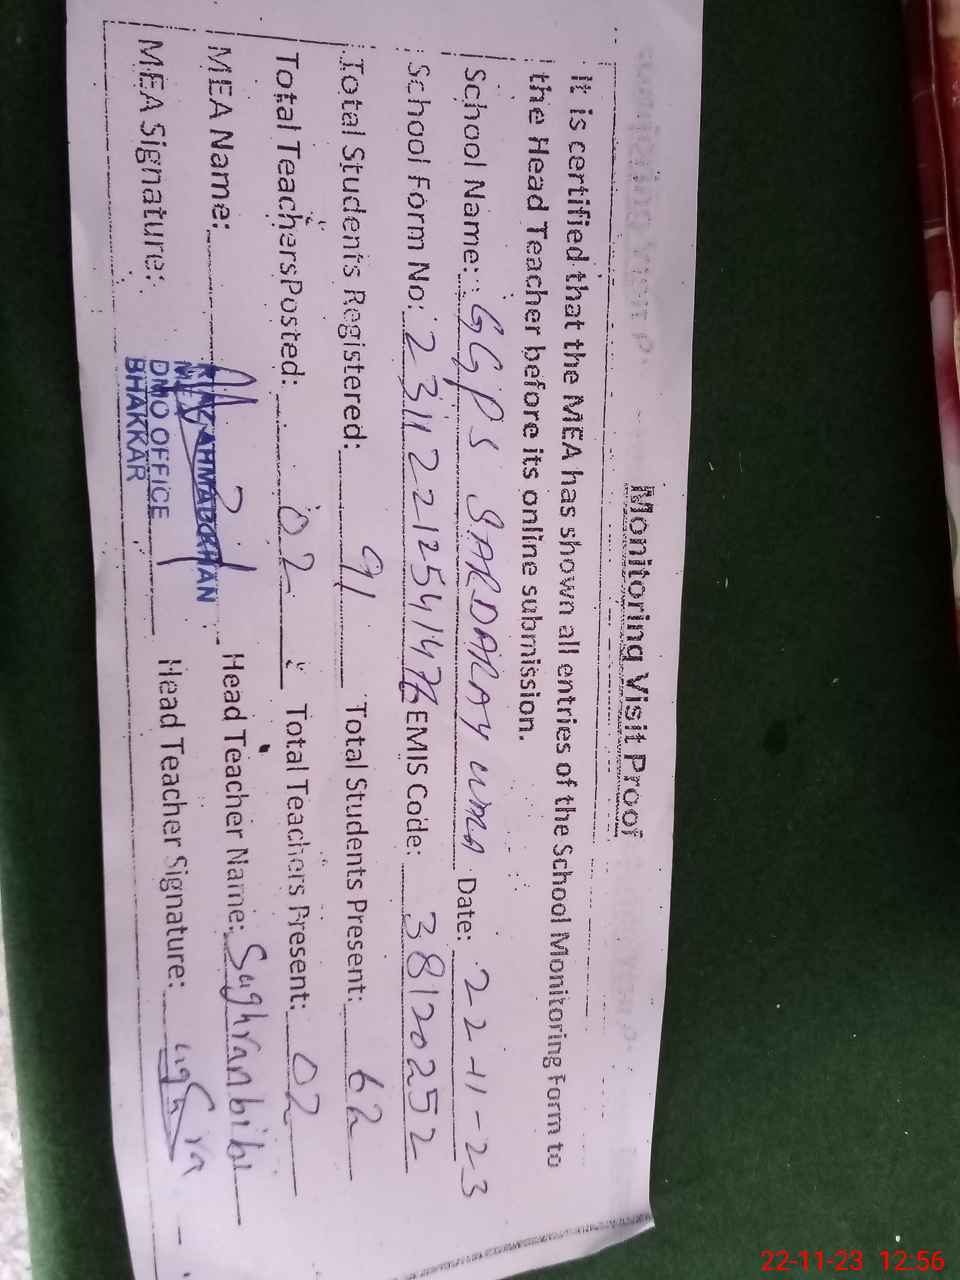 Monitoring Visit Proof
It is certified that the MEA has shown all entries of the School Monitoring Form to
the Head Teacher before its online submission.
School Name: GGPS SARDARAY WALA Date: 22-11-23
School Form No: EMIS Code: 38120252
Total Students Registered: 91 Total Students Present: 62
Total Teachers Posted: 02 Total Teachers Present: 02
MEA Name: RIAZ AHMAD KHAN Head Teacher Name: Sughran bibi
MEA
MEA Signature: DMO OFFICE Head Teacher Signature:
BHAKKAR
22-11-23 12:56